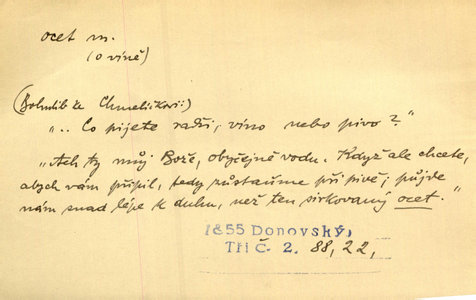 ocet m.
(o víně)
(Bohdil ke Chmelíčkovi:)
"... Co pijete radši, víno nebo pivo?"
"Ach ty můj Bože, obyčejně vodu. Když ale chcete,
abych vám připil, tedy zůstaňme při pivě; půjde
nám snad lépe k duhu, než ten sirkovaný ocet."
1855 Donovský,
Tři č. 2. 88, 22,